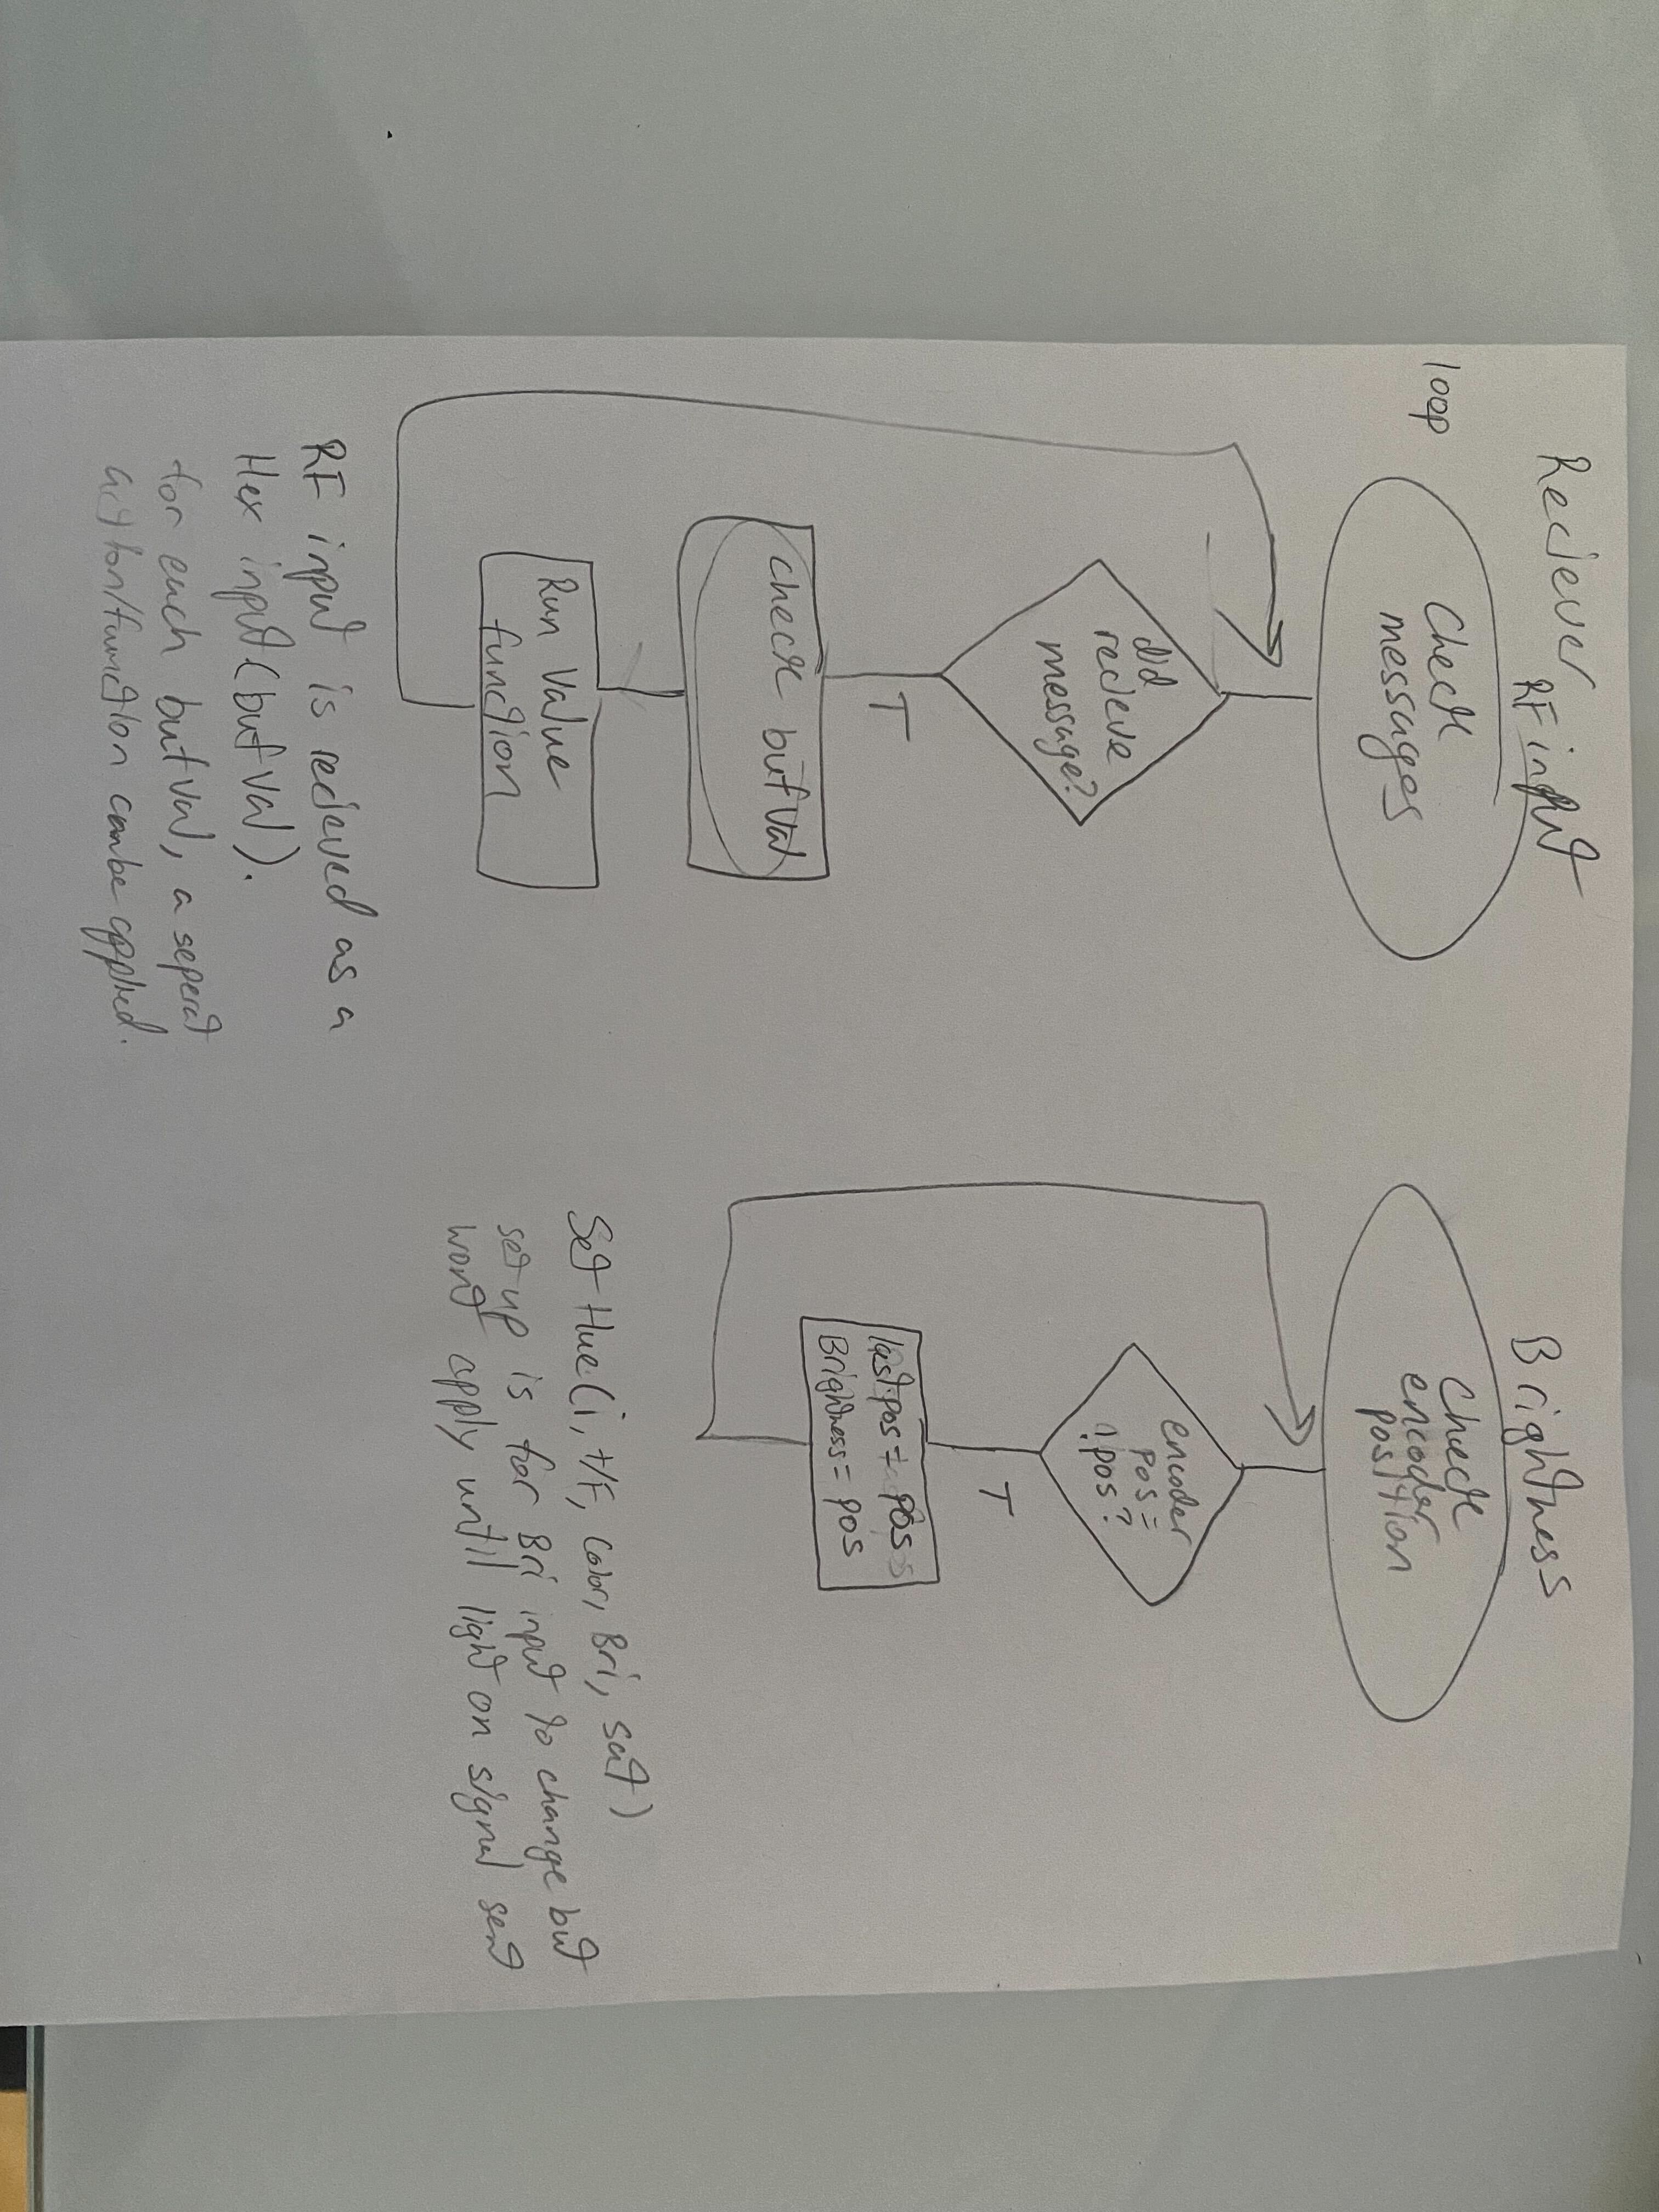 Reciever
RF input
loop
Check
messages
did
recieve
message?
T
check butVal
Run Value
function
RF input is recieved as a
Hex input (butVal).
for each butVal, a seperat
action/function can be applied.
Brightness
Check
encoder
position
encoder
pos =
!pos?
T
last.pos = pos
Brightness = pos
Set Hue(i, t/F, Color, Bri, sat)
set up is for Bri input to change but
wont apply until light on signal sent